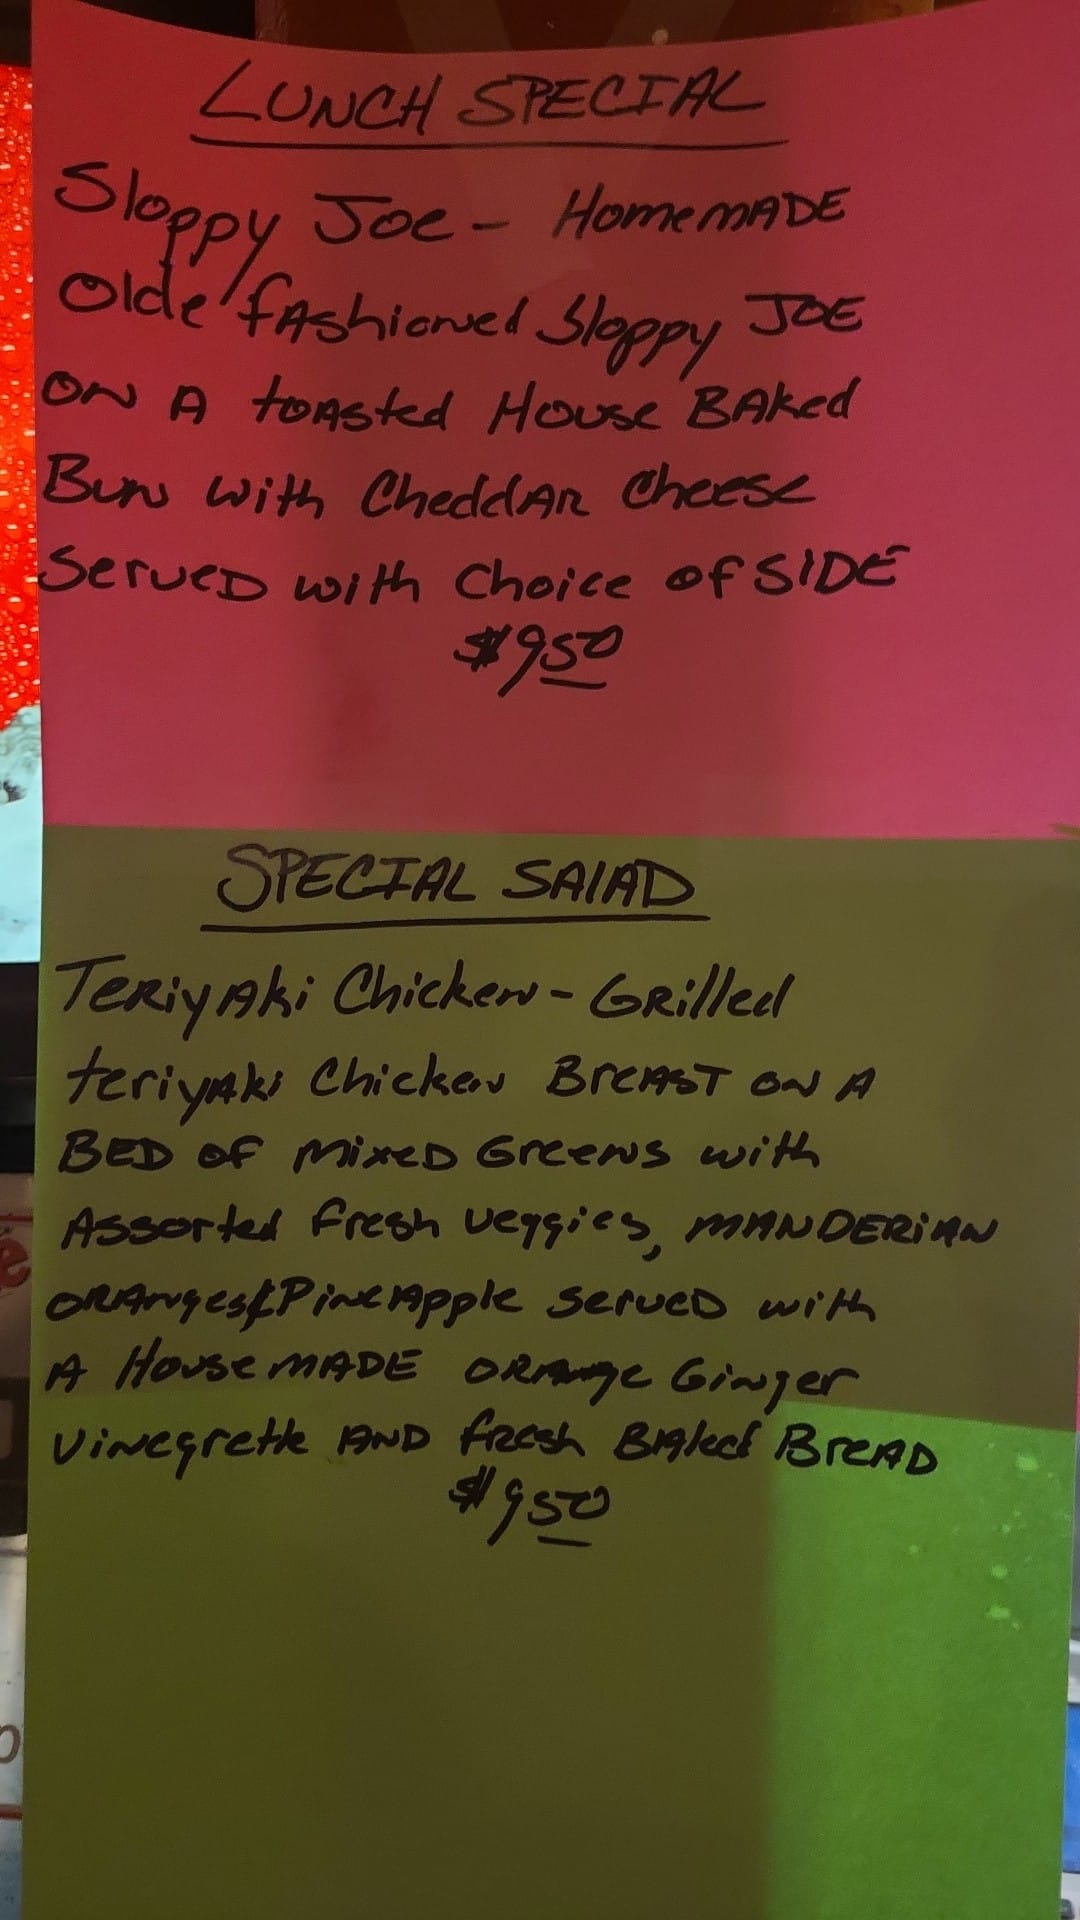 LUNCH SPECIAL
Sloppy Joe - HomemADE
Olde fashioned Sloppy JOE
ON A toAsted House BAked
Bun with CheddAR Cheese
Served with Choice of SIDE
$9.50
SPECIAL SAlAD
TeRiyAki Chicken - GRilled
teriyAki Chicken BreAST on A
BED of mixed Greens with
Assorted fresh veggies, mANDERiAN
ORAnges & PineApple served with
A HousemADE ORAnge Ginger
Vinegrette AND fresh BAked BreAD
$9.50